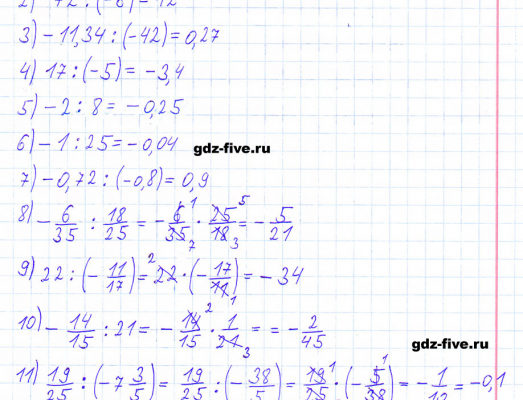 2) 72 : (-6) = -12
3) - 11,34 : (-42) = 0,27
4) 17 : (-5) = -3,4
5) - 2 : 8 = -0,25
6) - 1 : 25 = -0,04
gdz-five.ru
7) -0,72 : (-0,8) = 0,9
8) - 6/35 : 18/25 = - 6/35 · 25/18 = - 5/21
9) 22 : (- 11/17) = 22 · (- 17/11) = - 34
10) - 14/15 : 21 = - 14/15 · 1/21 = = - 2/45
gdz-five.ru
11) 19/25 : (-7 3/5) = 19/25 : (- 38/5) = 19/25 · (- 5/38) = - 1/10 = -0,1